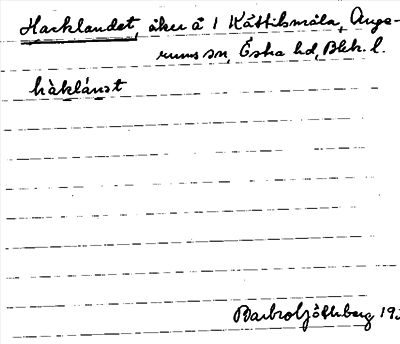 Hacklandet, åker å 1 Kättilsmåla, Ange-
rums sn, Östra hd, Blek. l.
hàklánst
Barbro Göthberg 193